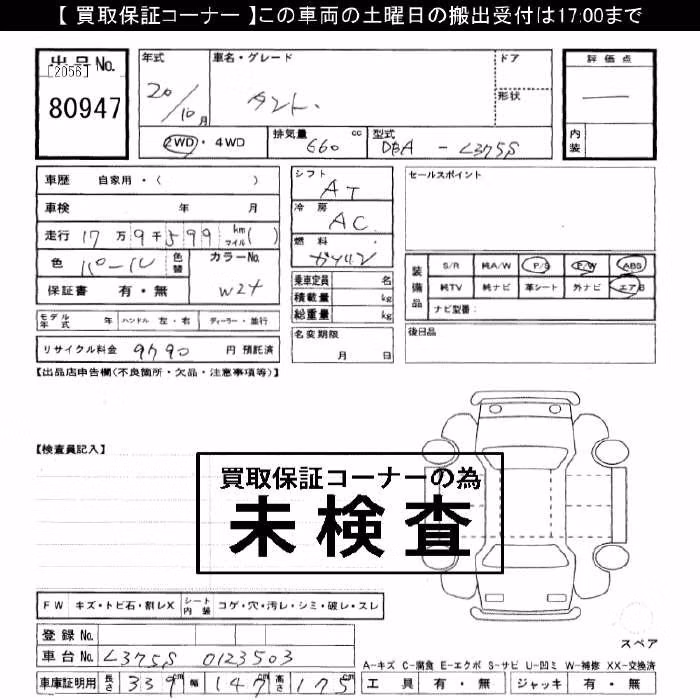 【 買取保証コーナー 】この車両の土曜日の搬出受付は17:00まで
出品No.
[2056]
80947
年式
20/10月
車名・グレード
タント.
ドア
形状
評価点
―
内装
2WD・4WD
排気量 660 cc
型式 DBA - L375S
車歴 自家用・( )
車検 年 月
走行 17万9千599 km マイル( )
色 パール 色替
カラーNo. W24
保証書 有・無
シフト AT
冷房 AC
燃料 ガソリン
乗車定員 名
積載量 kg
総重量 kg
セールスポイント
装備品
S/R 純A/W P/S P/W ABS
純TV 純ナビ 革シート 外ナビ エアB
ナビ型番:
モデル年式 年 ハンドル 左・右 ディーラー・並行
名変期限
月 日
後日品
リサイクル料金 9790 円 預託済
【出品店申告欄(不良箇所・欠品・注意事項等)】
【検査員記入】
買取保証コーナーの為
未検査
FW キズ・トビ石・割レX シート内装 コゲ・穴・汚レ・シミ・破レ・スレ
登録No.
車台No. L375S 0123503
車庫証明用 長さ 339cm 幅 147cm 高さ 175cm
スペア
A-キズ C-腐食 E-エクボ S-サビ U-凹ミ W-補修 XX-交換済
工具 有・無 ジャッキ 有・無